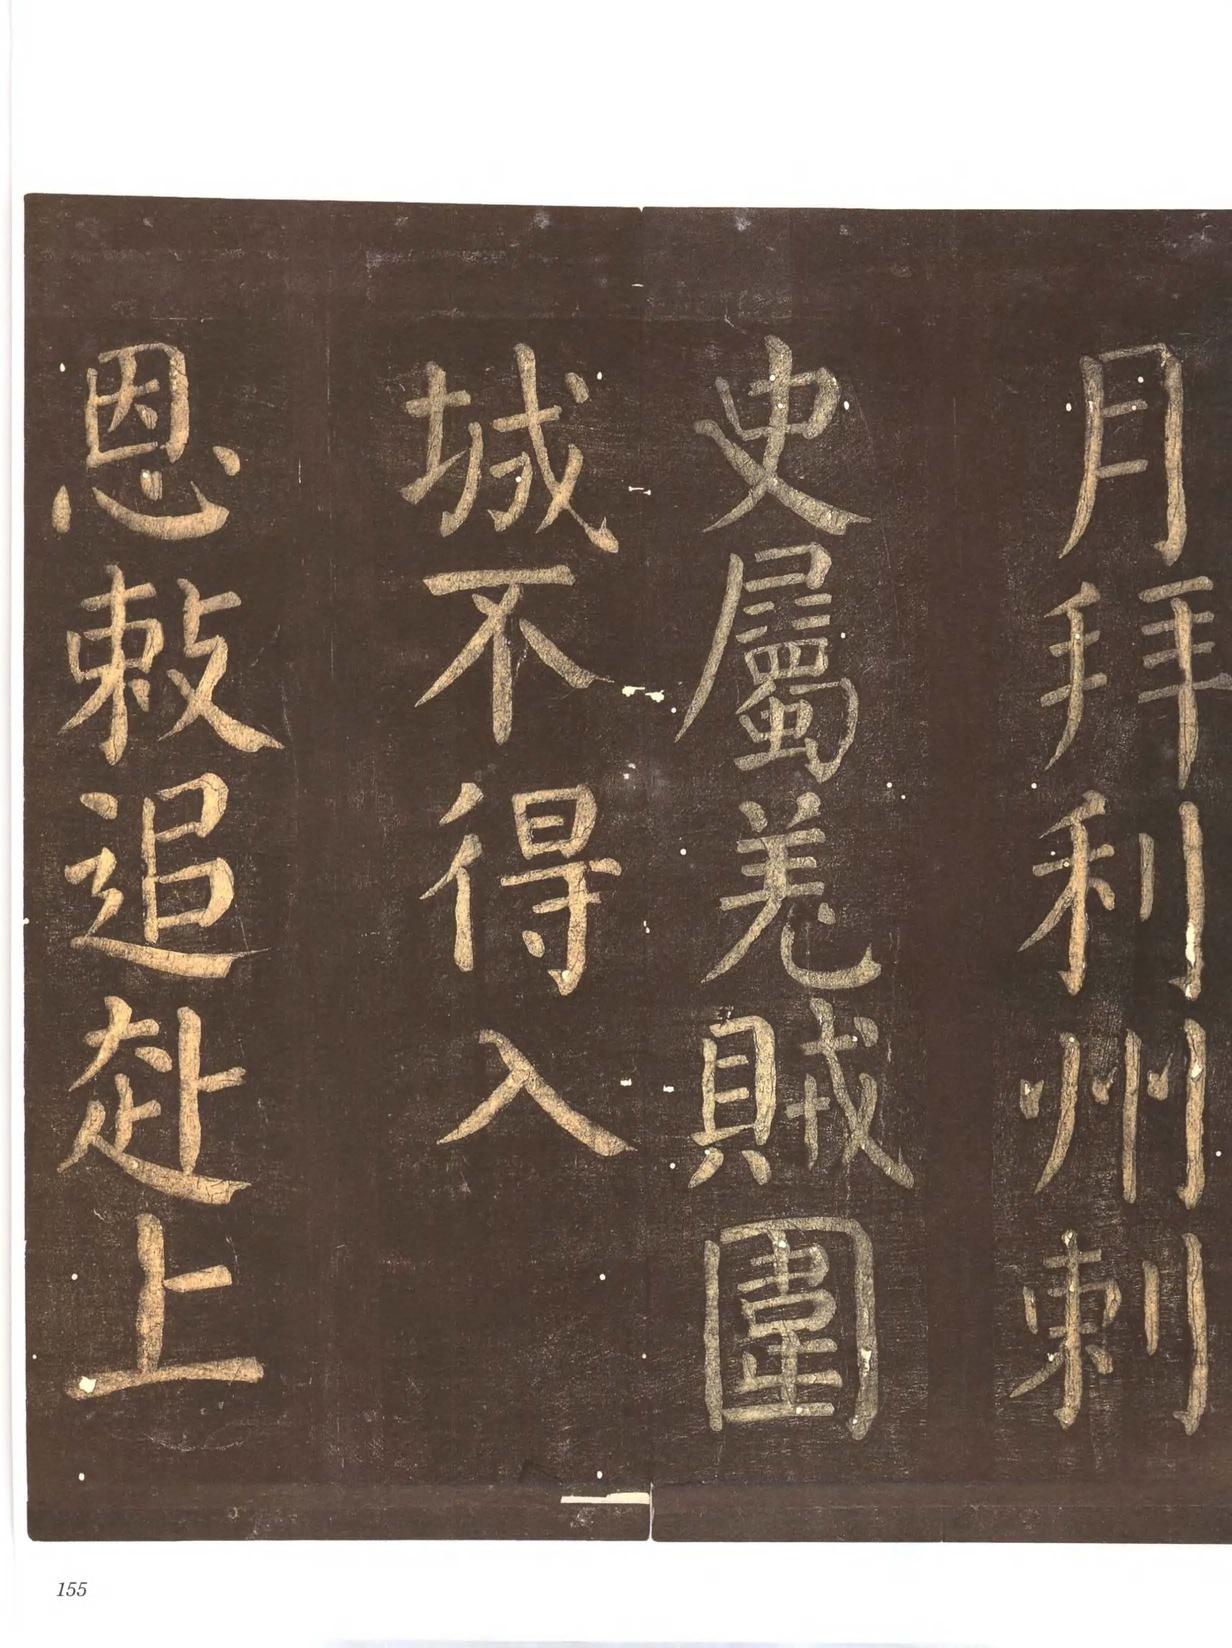 月拜利州刺
史屬羌賊圍
城不得入
恩敕追赴上
155